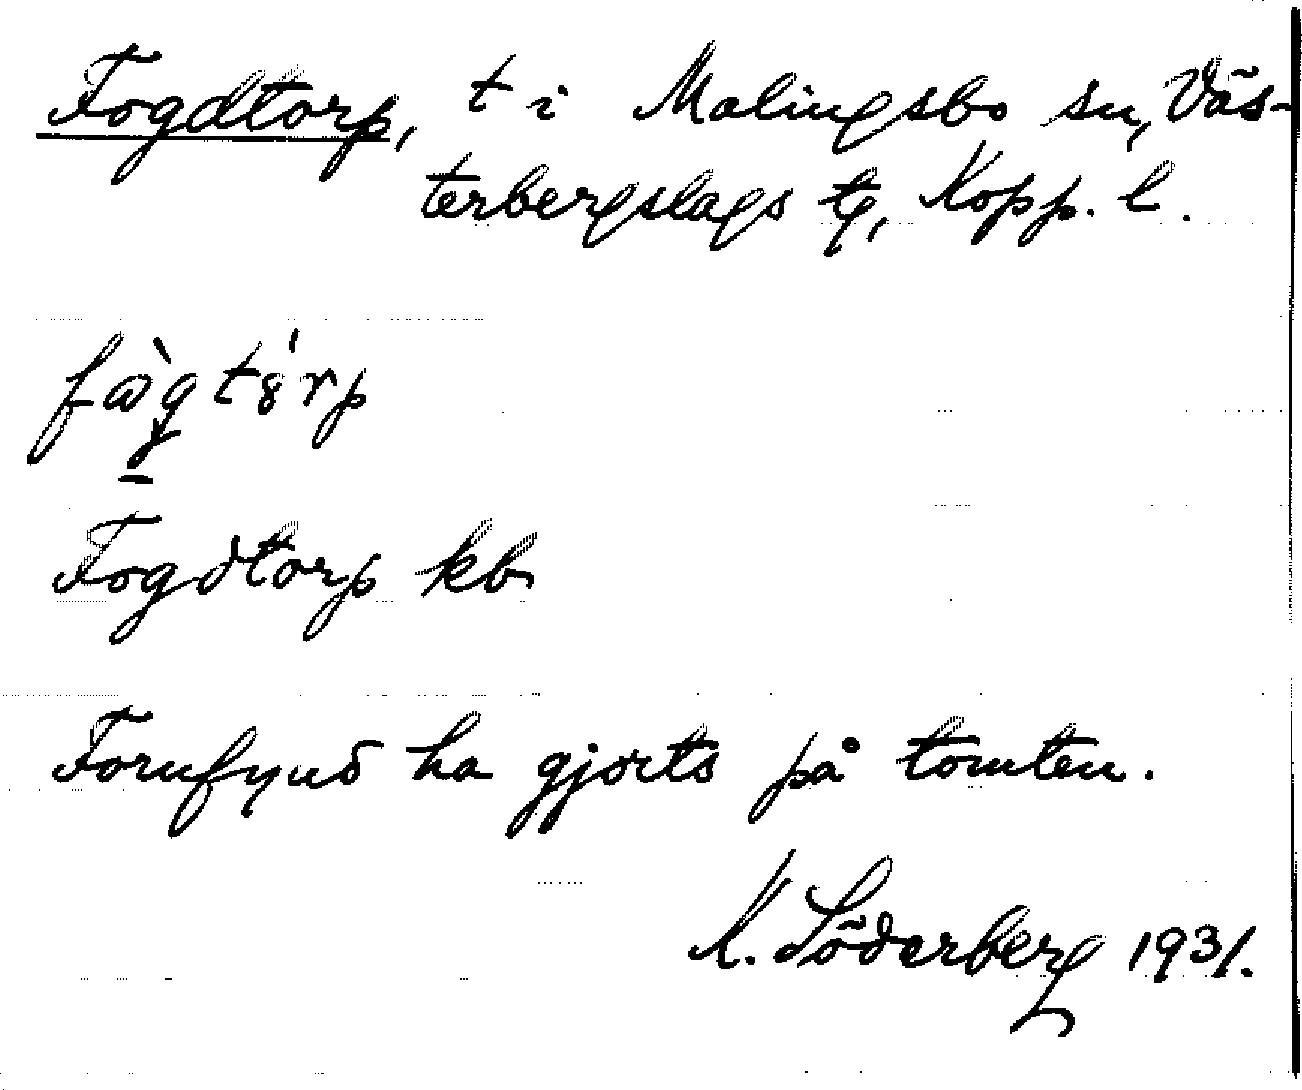 Fogdtorp, t i Malingsbo sn, Väs-
terbergslags tg, Kopp. l.
Fogdtorp kb
Fornfynd ha gjorts på tomten.
K. Söderberg 1931.